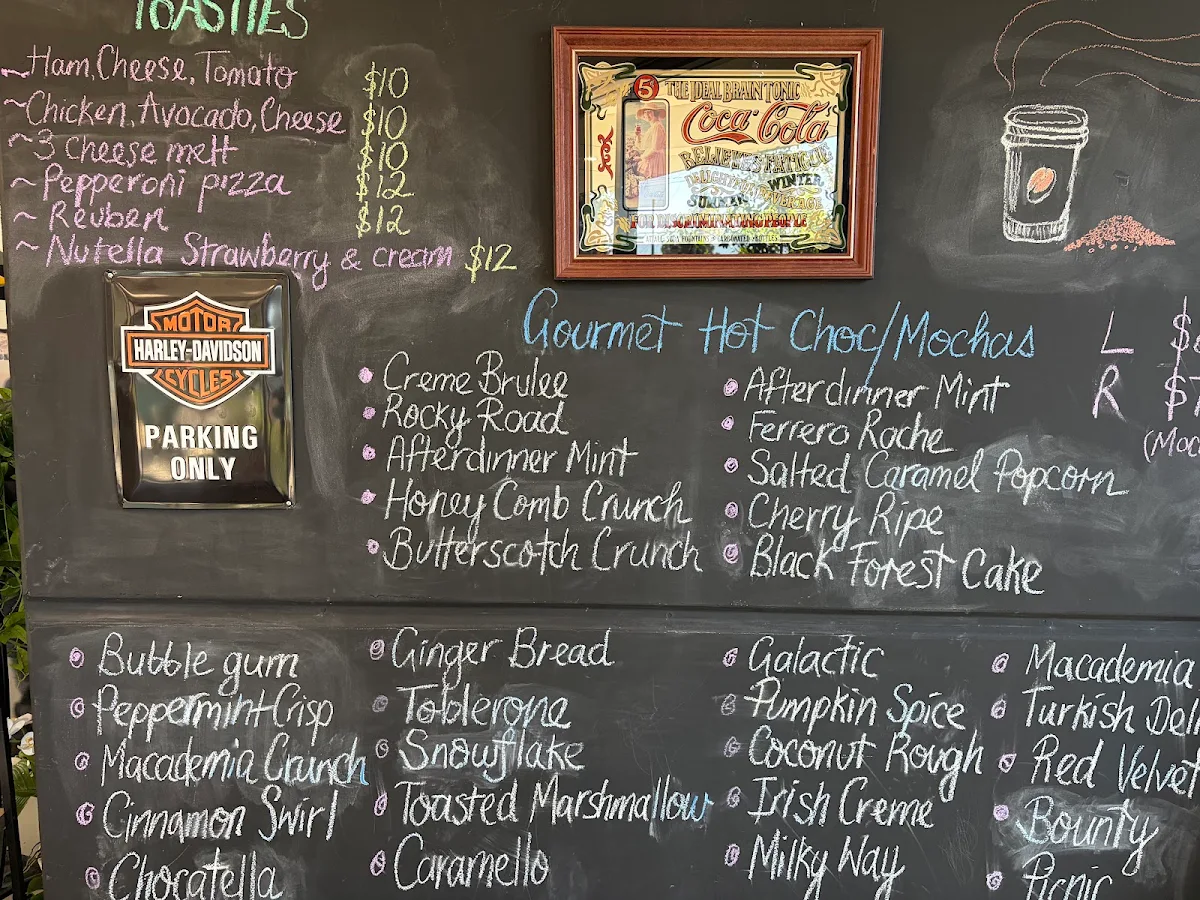 TOASTIES
~Ham, Cheese, Tomato $10
~Chicken, Avocado, Cheese $10
~3 cheese melt $10
~Pepperoni pizza $12
~Reuben $12
~Nutella Strawberry & cream $12
5¢ THE IDEAL BRAIN TONIC
Coca-Cola
RELIEVES FATIGUE
DELIGHTFUL WINTER
SUMMER BEVERAGE
FOR DISCRIMINATING PEOPLE
MOTOR
HARLEY-DAVIDSON
CYCLES
PARKING
ONLY
Gourmet Hot Choc/Mochas
L $
R $7
(Moc
Creme Brulee
Rocky Road
Afterdinner Mint
Honey Comb Crunch
Butterscotch Crunch
Afterdinner Mint
Ferrero Roche
Salted Caramel Popcorn
Cherry Ripe
Black Forest Cake
Bubble gum
Peppermint Crisp
Macademia Crunch
Cinnamon Swirl
Chocatella
Ginger Bread
Toblerone
Snowflake
Toasted Marshmallow
Caramello
Galactic
Pumpkin Spice
Coconut Rough
Irish Creme
Milky Way
Macademia
Turkish Del
Red Velvet
Bounty
Picnic